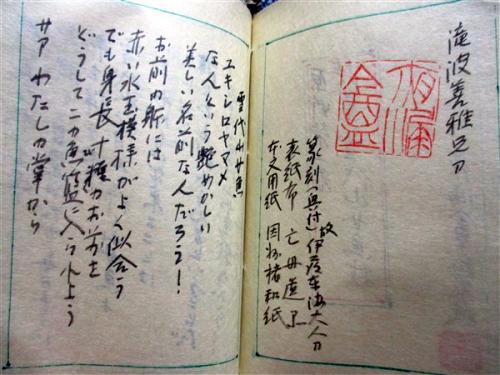 滝波善雅之刀
篆刻(奥付)故伊藤東海大人刀
表紙布 亡母遺品
本文用紙 因州楮和紙
雪代山女魚
ユキシロヤマメ
なんという艶めかしい
美しい名前なんだろう!
お前の躯には
赤い水玉模様がよく似合う
でも身長十糎のお前を
どうしてこの魚籃に入られよう
サアわたしの掌から